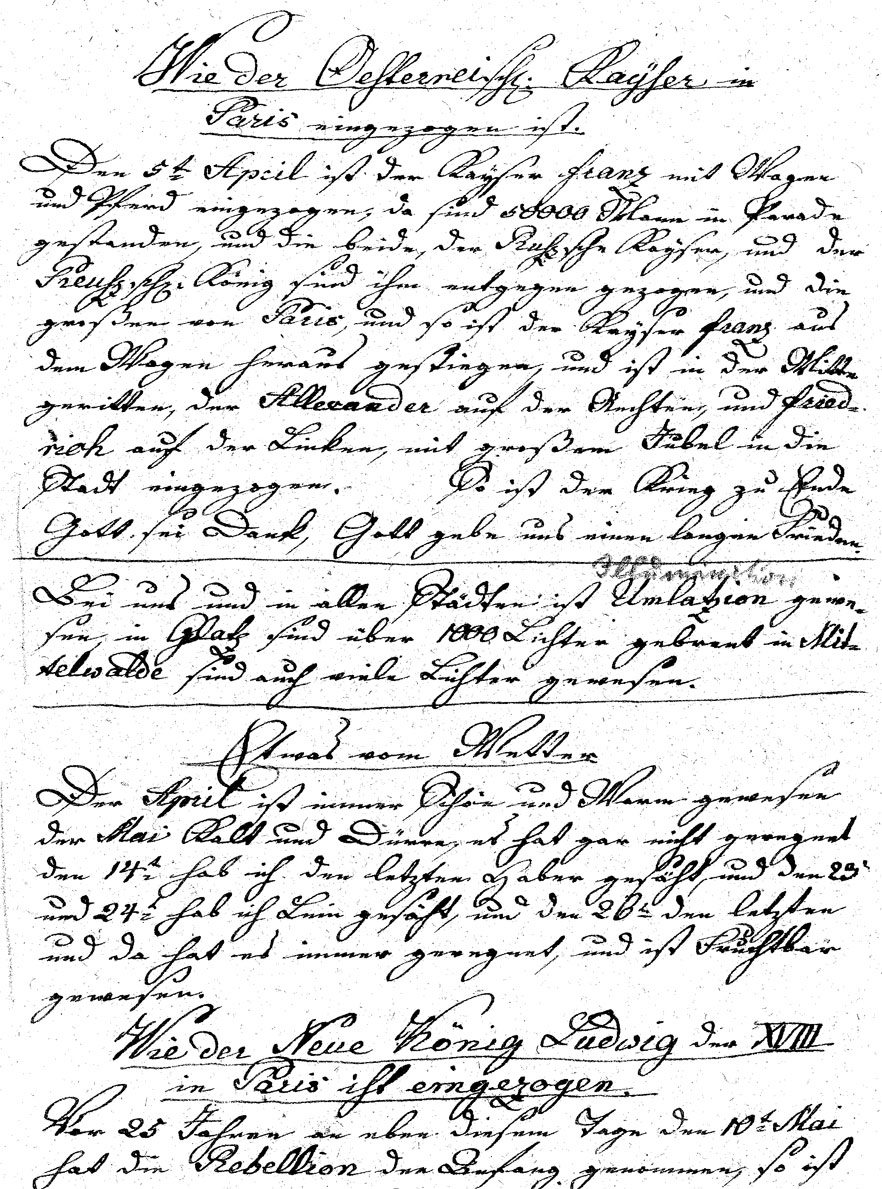 Wie der Oesterreisch: Kaÿser in
Paris eingezogen ist.
Den 5t April ist der Kaÿser Franz mit Wagen
und Pferd eingezogen, da sind 50000 Mann in Parade
gestanden, und die beide, der Rußsche Kaÿser, und der
Preußsch: König sind ihm entgegen gezogen, und die
großen von Paris, und so ist der Kaÿser Franz aus
dem Wagen heraus gestiegen, und ist in der Mitte
geritten, der Allexander auf der Rechten, und Fried-
rich auf der Linken, mit großem Jubel in die
Stadt eingezogen. So ist der Krieg zu Ende
Gott sei Dank, Gott gebe uns einen langen Frieden.
Illumination
Bei uns und in allen Städten ist Umlazion gewe-
sen, in Glatz sind über 1000 Lichter gebrent in Mit-
telwalde sind auch viele Lichter gewesen.
Etwas vom Wetter
Der April ist immer Schön und Warm gewesen
der Mai Kalt und Dürre, es hat gar nicht geregnet
den 14t hab ich den letzten Haber gesäht, und den 23t
und 24t hab ich Lein gesäht, und den 26t den letzten
und da hat es immer geregnet, und ist Fruchtbar
gewesen.
Wie der Neue König Ludwig der XVIII
in Paris ist eingezogen.
Vor 25 Jahren an eben diesem Tage den 10t Mai
hat die Rebellion den Anfang genommen, so ist